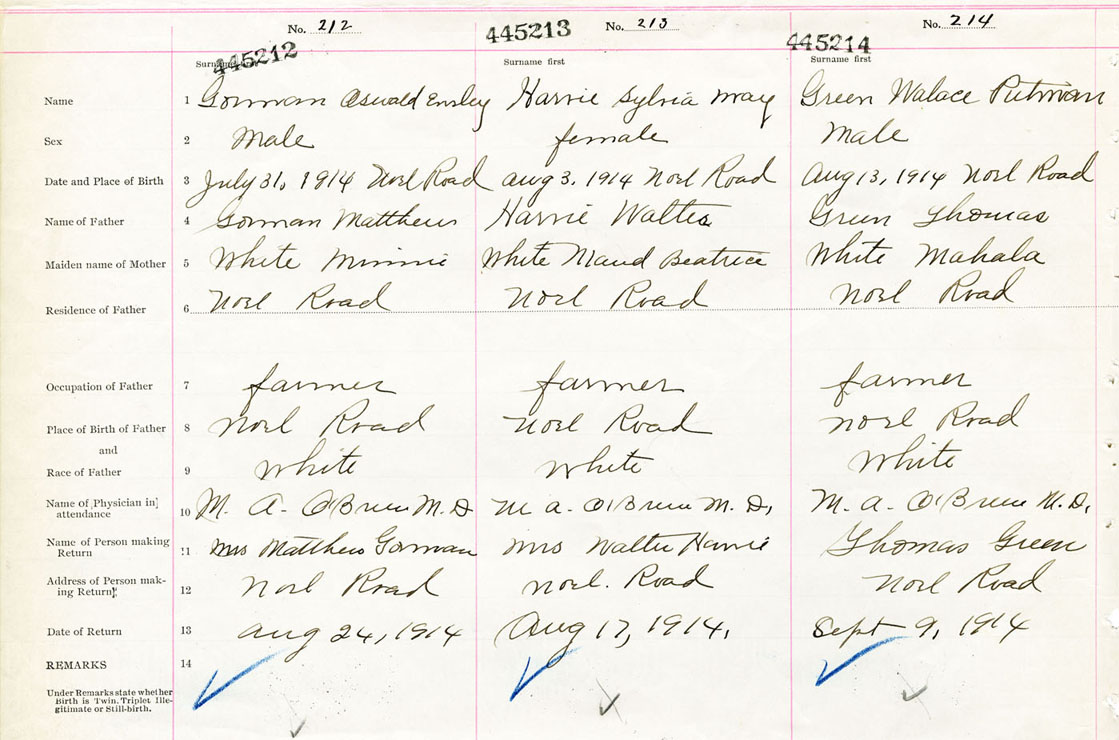 No. 212 No. 213 No. 214
445212 445213 445214
Surname first Surname first Surname first
Name 1 Gorman Oswald Ensley Harvie Sylvia May Green Walace Putman
Sex 2 Male female Male
Date and Place of Birth 3 July 31, 1914 Noel Road Aug 3, 1914 Noel Road Aug 13, 1914 Noel Road
Name of Father 4 Gorman Matthew Harvie Walter Green Thomas
Maiden name of Mother 5 White Minnie White Maud Beatrice White Mahala
Residence of Father 6 Noel Road Noel Road Noel Road
Occupation of Father 7 farmer farmer farmer
Place of Birth of Father 8 Noel Road Noel Road Noel Road
and
Race of Father 9 White White White
Name of [Physician in] attendance 10 M. A. O'Brien M. D M A. O'Brien M. D, M. A. O'Brien M. D,
Name of Person making Return 11 Mrs Matthew Gorman Mrs Walter Harvie Thomas Green
Address of Person making Return 12 Noel Road Noel. Road Noel Road
Date of Return 13 Aug 24, 1914 Aug 17, 1914, Sept 9, 1914
REMARKS 14
Under Remarks state whether
Birth is Twin, Triplet Ille-
gitimate or Still-birth.